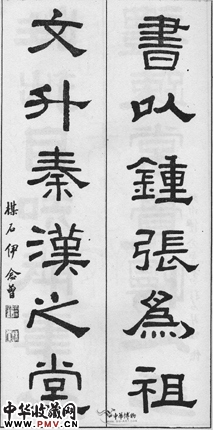 書以鍾張為祖
文升秦漢之堂
楳石伊念曾
中华博物
中华收藏网
www.PMV.cn